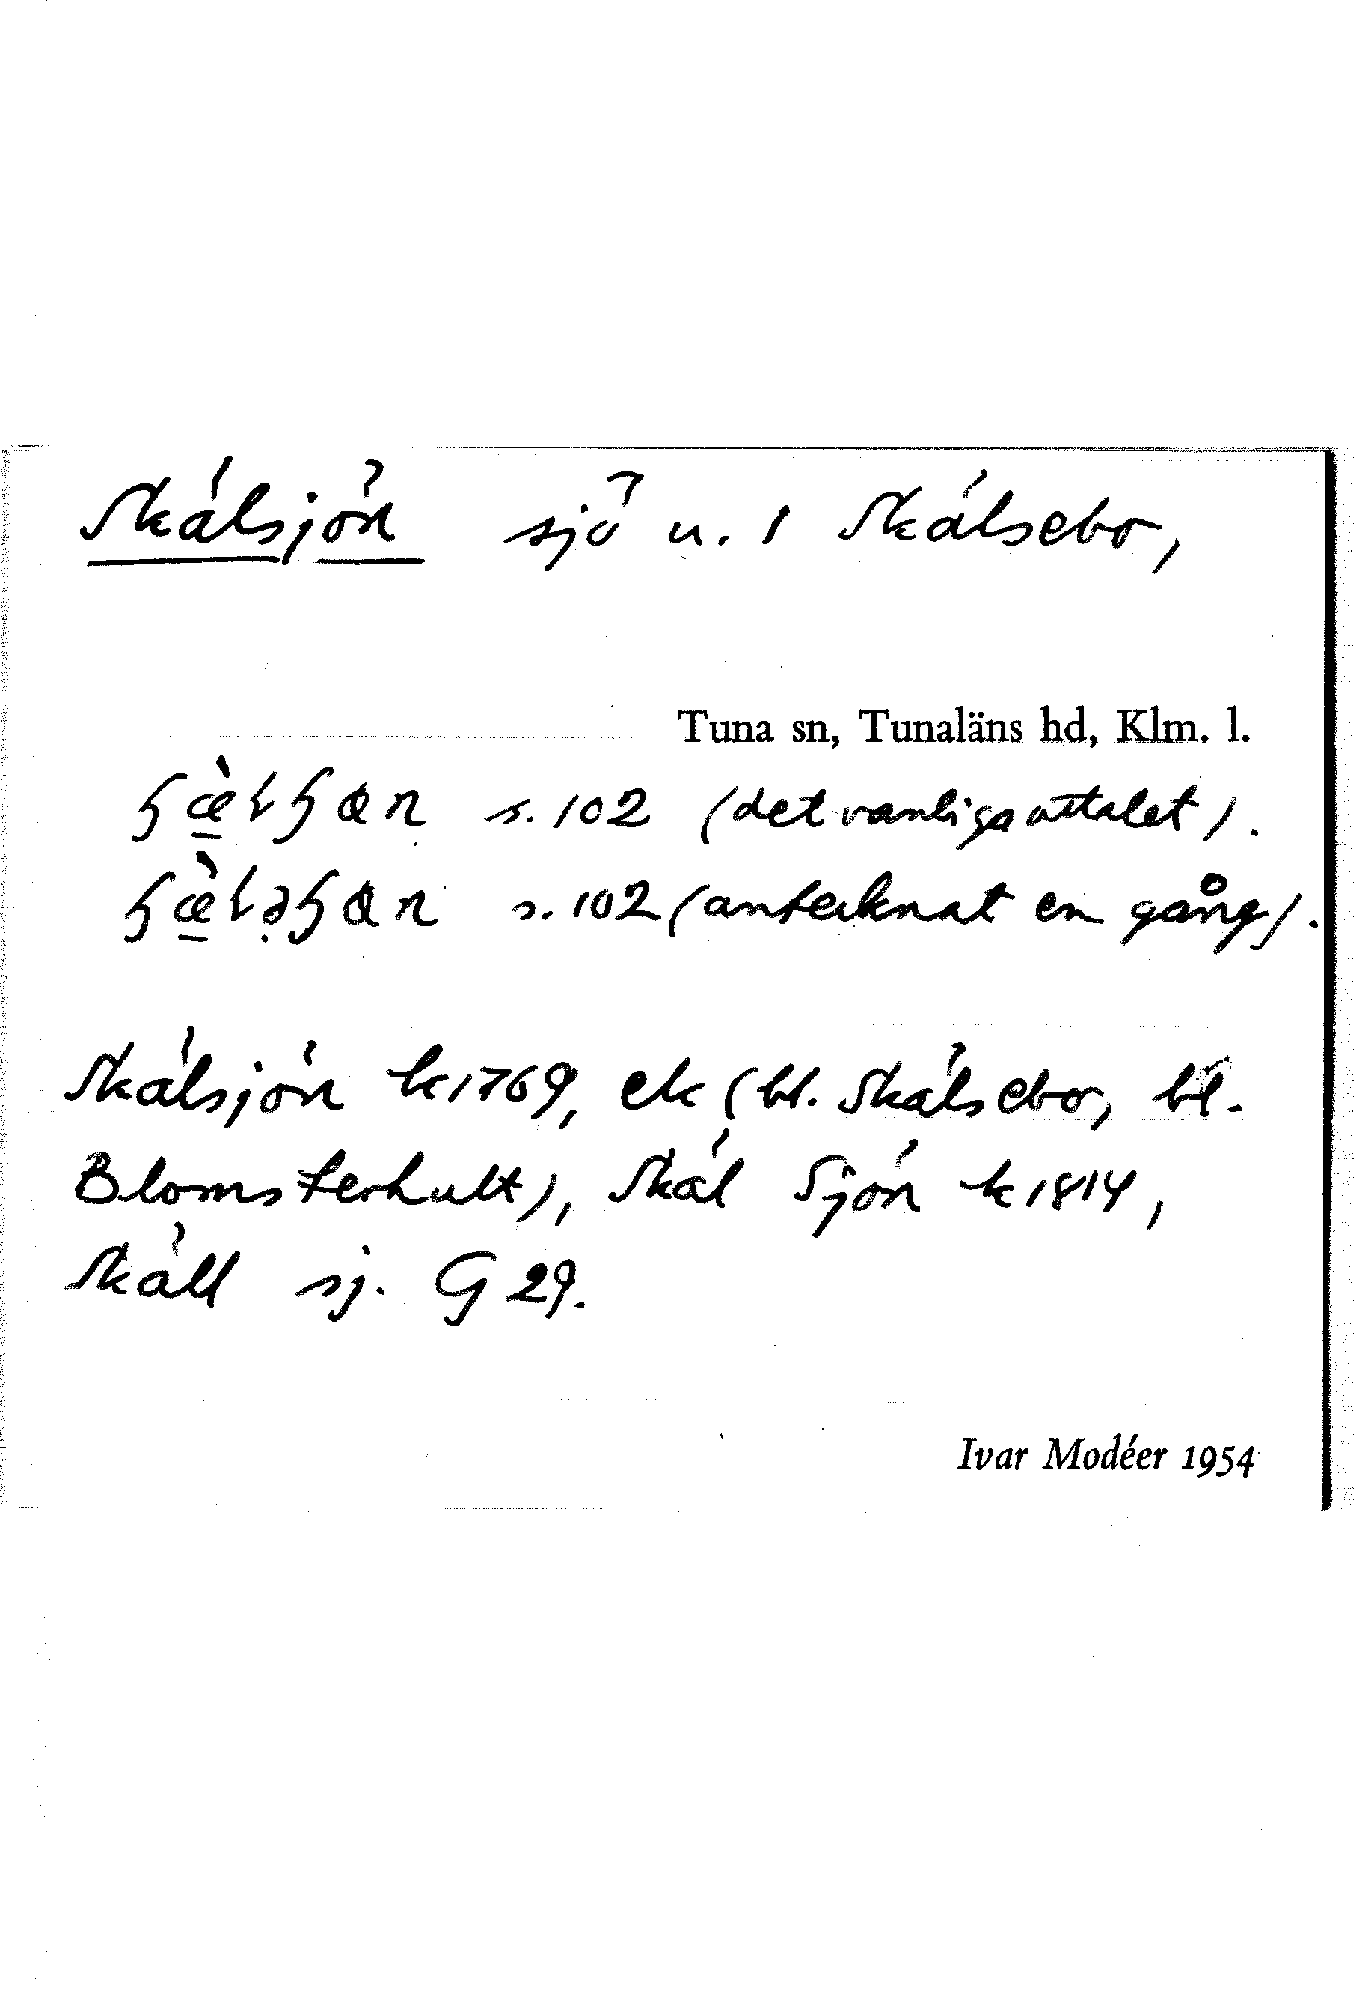 Skälsjön sjö u. 1 Skälsebo,
Tuna sn, Tunaläns hd, Klm. l.
s. 102 (det vanliga uttalet).
s. 102 (antecknat en gång).
Skälsjön k 1769, ek (bl. Skälsebo, bl.
Blomsterhult), Skäl Sjön k 1814,
Skäll sj. G 29.
Ivar Modéer 1954